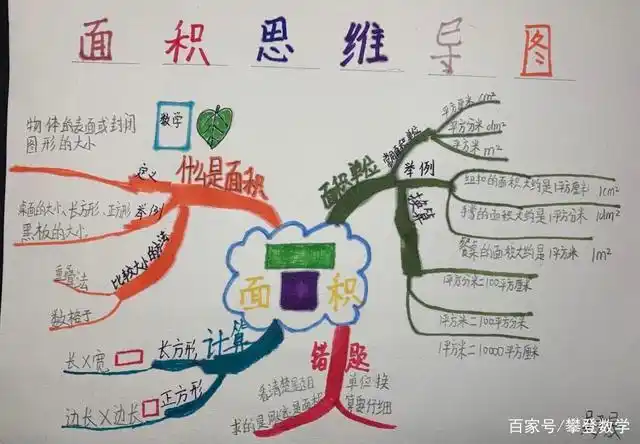 面积思维导图
数学
物体的表面或封闭
图形的大小
定义
什么是面积
桌面的大小、长方形、正方形
黑板的大小
举例
比较大小的方法
重叠法
数格子
面积单位
常用面积单位
平方厘米 cm²
平方分米 dm²
平方米 m²
举例
纽扣的面积大约是1平方厘米 1cm²
手掌的面积大约是1平方分米 1dm²
餐桌的面积大约是1平方米 1m²
1平方分米=100平方厘米
1平方米=100平方分米
1平方米=10000平方厘米
面积
计算
长方形
长×宽
正方形
边长×边长
错题
看清楚题目
求的是周长还是面积
单位换
算要仔细
百家号/攀登数学